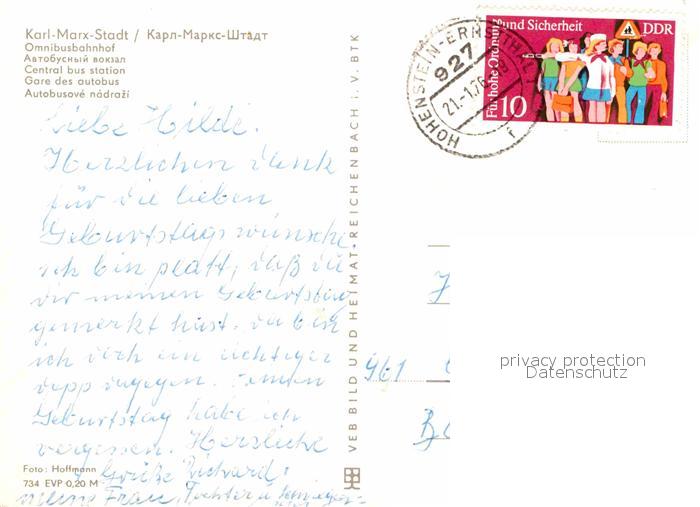 Karl-Marx-Stadt / Карл-Маркс-Штадт
Omnibusbahnhof
Автобусный вокзал
Central bus station
Gare des autobus
Autobusové nádraží
Liebe Hilde.
Herzlichen Dank
für die lieben
Geburtstagswünsche.
Ich bin platt, daß du
dir meinen Geburtstag
gemerkt hast. Da bin
ich doch ein richtiger
Depp dagegen. Deinen
Geburtstag habe ich
vergessen. Herzliche
Grüße Richard
meine Frau, Tochter u.
Foto: Hoffmann
734 EVP 0,20 M
VEB BILD UND HEIMAT REICHENBACH I. V. BTK
HOHENSTEIN-ERNSTTHAL 1
927
21.-1.76
f
Für hohe Ordnung und Sicherheit
DDR
10
961
privacy protection
Datenschutz